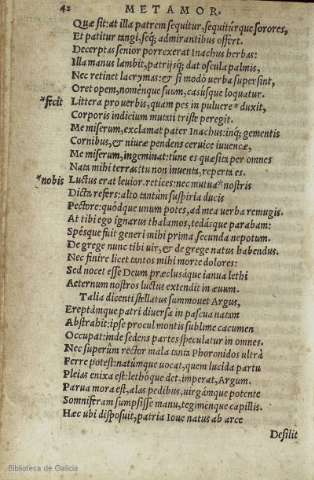 42 METAMOR.
Quæ sit: at illa patrem sequitur, sequiturque sorores,
Et patitur tangi, seq; admirantibus offert.
Decerptas senior porrexerat Inachus herbas:
Illa manus lambit, patrijsq; dat oscula palmis,
Nec retinet lacrymas: & si modò verba supersint,
Oret opem, nomenque suum, casusque loquatur.
*fecit Littera pro verbis, quam pes in puluere* duxit,
Corporis indicium mutati triste peregit.
Me miserum, exclamat pater Inachus: inq; gementis
Cornibus, & niueæ pendens ceruice iuuencæ,
Me miserum, ingeminat: túne es quæsita per omnes
Nata mihi terras: tu non inuenta, reperta es.
*nobis Luctus erat leuior. retices: nec mutua* nostris
Dicta refers: alto tantùm suspiria ducis
Pectore: quódque unum potes, ad mea verba remugis.
At tibi ego ignarus thalamos, tedásque parabam:
Spésque fuit generi mihi prima secunda nepotum.
De grege nunc tibi uir, & de grege natus habendus.
Nec finire licet tantos mihi morte dolores:
Sed nocet esse Deum: præclusáque ianua lethi
Aeternum nostros luctus extendit in æuum.
Talia dicenti stellatus summouet Argus,
Ereptámque patri diuersa in pascua natam
Abstrabit: ipse procul montis sublime cacumen
Occupat: inde sedens partes speculatur in omnes.
Nec superûm rector mala tanta Phoronidos ultrà
Ferre potest: natúmque uocat, quem lucida partu
Pleias enixa est: lethóque det. imperat, Argum.
Parua mora est, alas pedibus, uirgámque potente
Somniferam sumpsisse manu, tegiménque capillis.
Hæc ubi disposuit, patria Ioue natus ab arce
Desilit
Biblioteca de Galicia